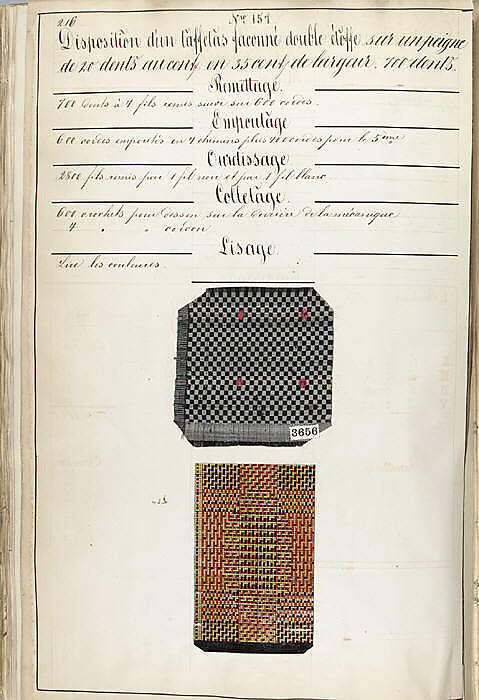 216
Nº 151
Disposition d'un Taffetas façonné double étoffe sur un peigne
de 20 dents au cent. en 35 cent. de largeur. 700 dents.
Remettage.
700 dents à 4 fils remis suivi sur 600 cordes.
Empoutage
600 cordes empoutés en 4 chemins plus 100 cordes pour le 5ème
Ourdissage
2800 fils ourdis par 1 fil noir et par 1 fil blanc
Colletage.
600 crochets pour dessin sur la de la mécanique
4 " " cordon
Lisage
Lire les couleures.
3656